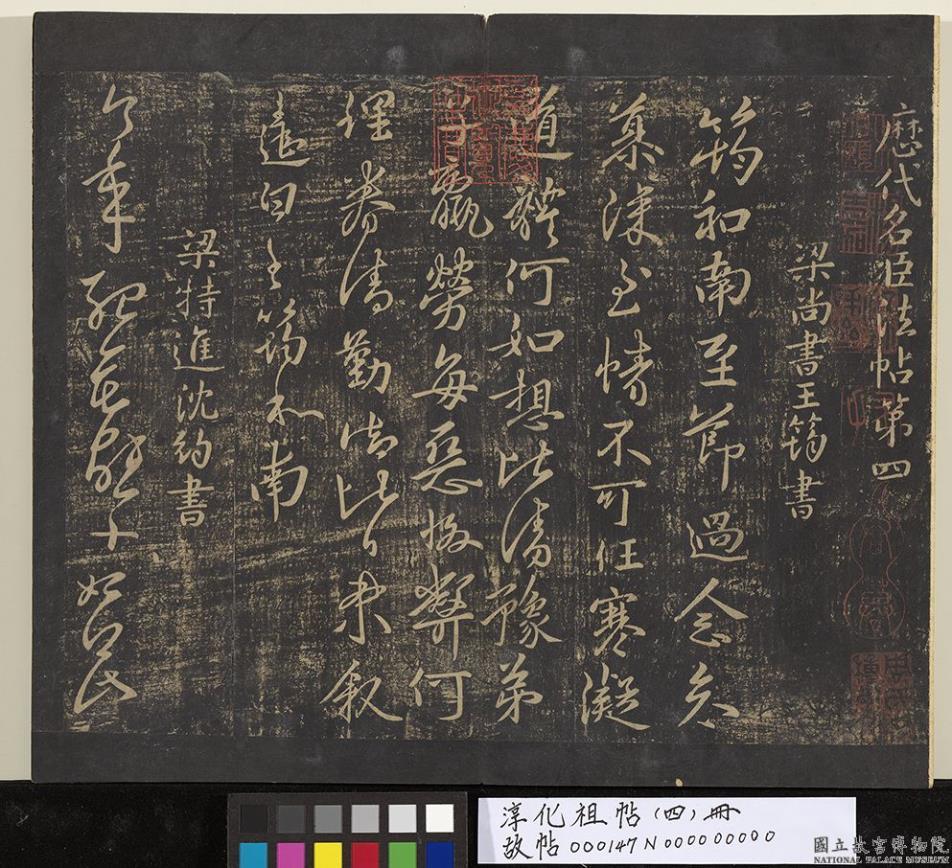 歷代名臣法帖第四
梁尚書王筠書
筠和南至節過念哀
慕深至情不可任寒凝
道體何如想比清豫弟
子羸勞每惡極弊何
理眷清勤比日敘
遣白王筠和南
梁特進沈約書
今年
淳化祖帖(四)冊
故帖000147N000000000
國立故宮博物院
NATIONAL PALACE MUSEUM